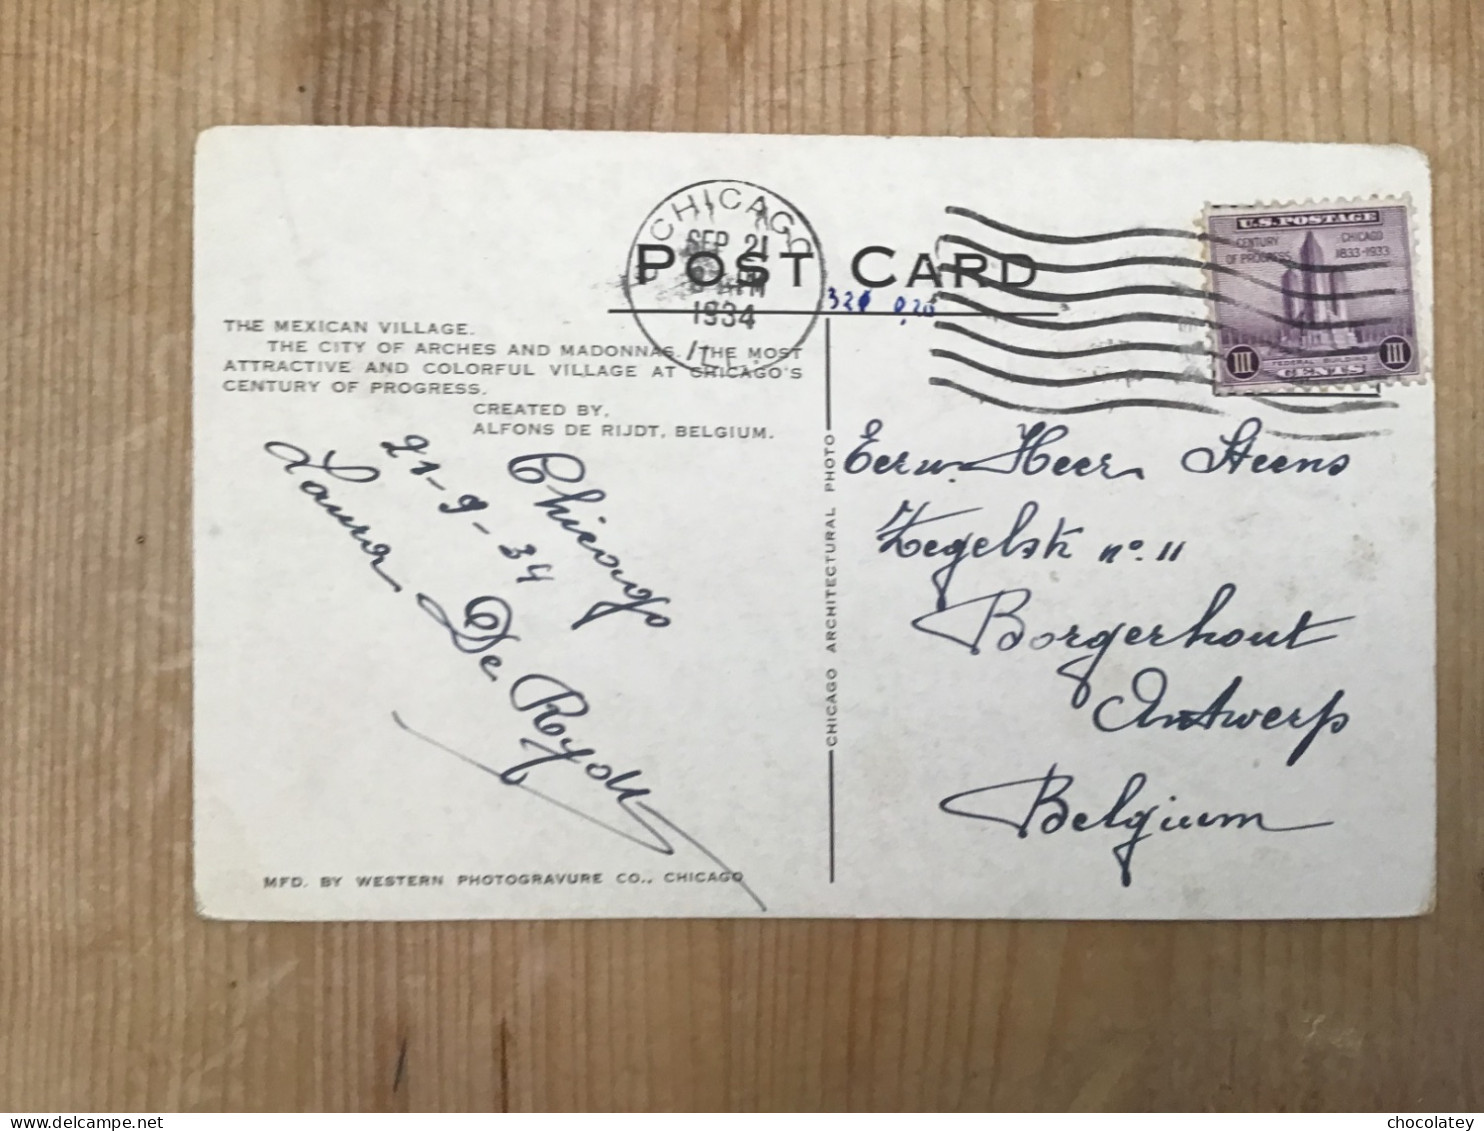 CHICAGO
SEP 21
1934
ILL.
POST CARD
U.S. POSTAGE
CENTURY OF PROGRESS
CHICAGO 1833-1933
FEDERAL BUILDING
III CENTS III
THE MEXICAN VILLAGE.
THE CITY OF ARCHES AND MADONNAS. THE MOST
ATTRACTIVE AND COLORFUL VILLAGE AT CHICAGO'S
CENTURY OF PROGRESS.
CREATED BY,
ALFONS DE RIJDT, BELGIUM.
Chicago
21-9-34
Laura De Rydt
MFD. BY WESTERN PHOTOGRAVURE CO., CHICAGO
CHICAGO ARCHITECTURAL PHOTO
Eerw. Heer Steens
Zegelstr nº 11
Borgerhout
Antwerp
Belgium
chocolatey